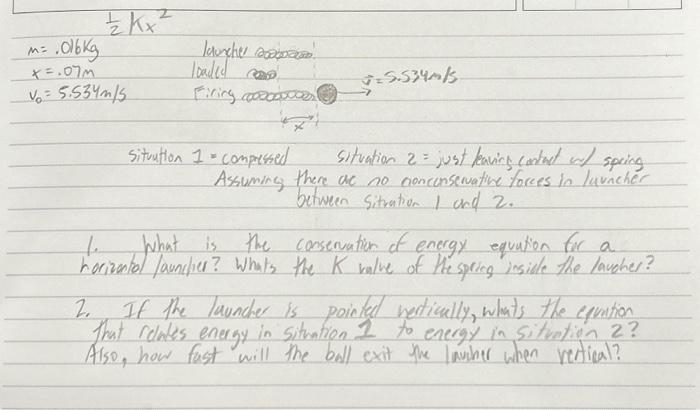 ½ Kx²
m = .016Kg
x = .07m
v₀ = 5.534m/s
launcher
loaded
Firing
v = 5.534m/s
x
Situation 1 = compressed
Situation 2 = just leaving contact w/ spring
Assuming there are no nonconservative forces in launcher
between Situation 1 and 2.
1. What is the conservation of energy equation for a
horizontal launcher? Whats the K value of the spring inside the laucher?
2. If the launcher is pointed vertically, whats the equation
that relates energy in situation 1 to energy in situation 2?
Also, how fast will the ball exit the launcher when vertical?